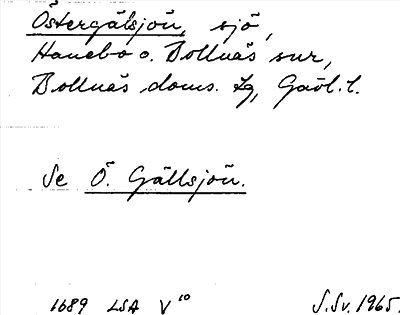 Östergålsjön, sjö,
Hanebo o. Bollnäs snr,
Bollnäs doms. Lg, Gävl. l.
Se Ö. Gällsjön.
1689 LSA V¹⁰
S.Sv. 1965.